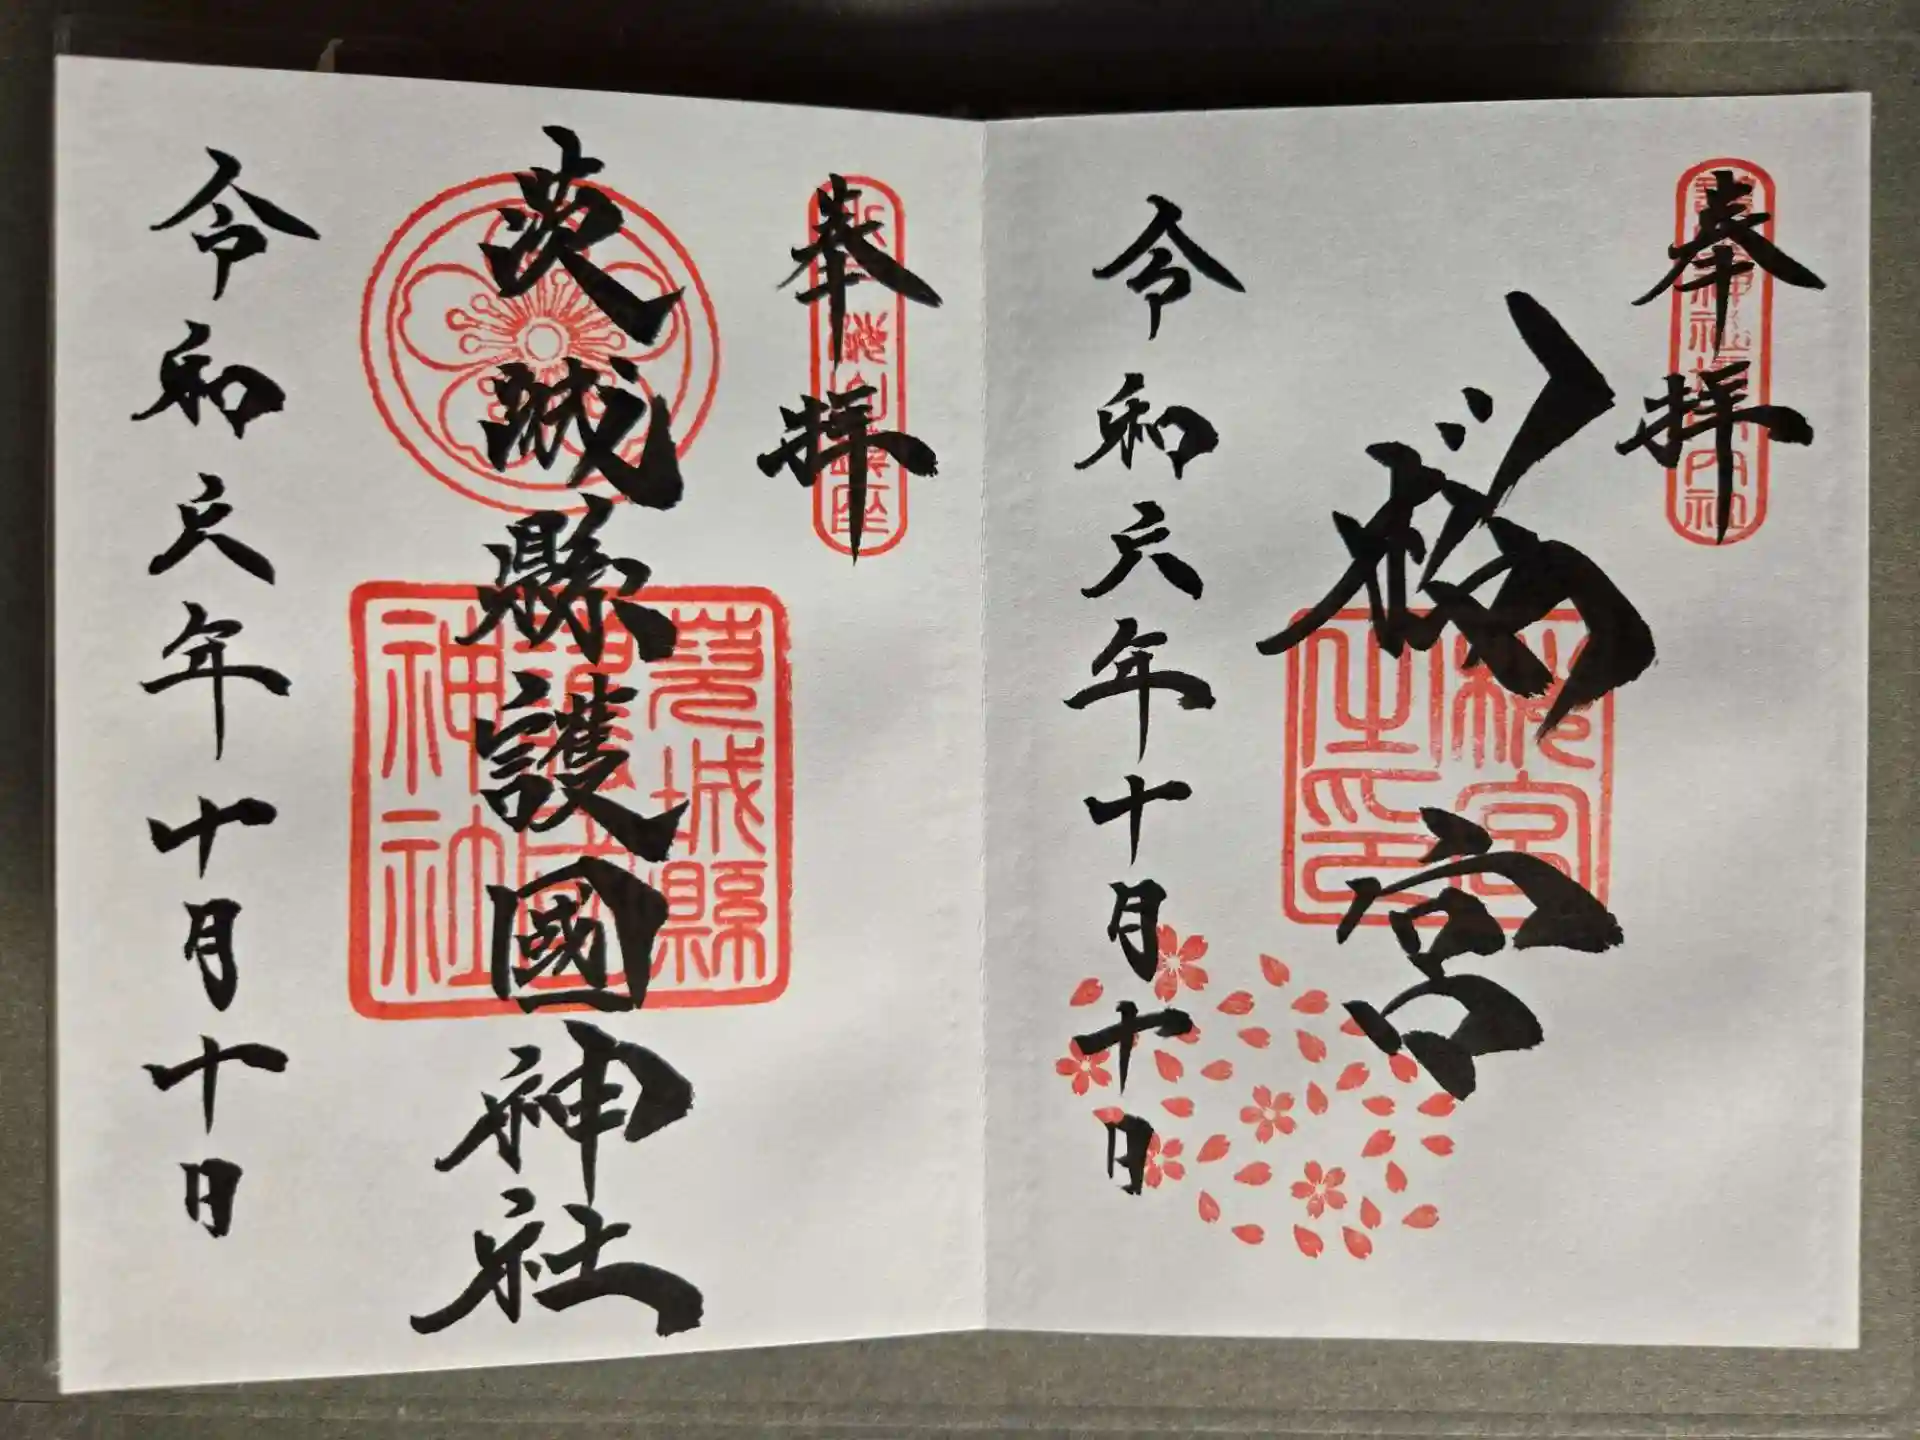 奉拝
桜宮
桜宮
之印
令和六年十月十日
奉拝
茨城縣護國神社
茨城縣
護國
神社
令和六年十月十日